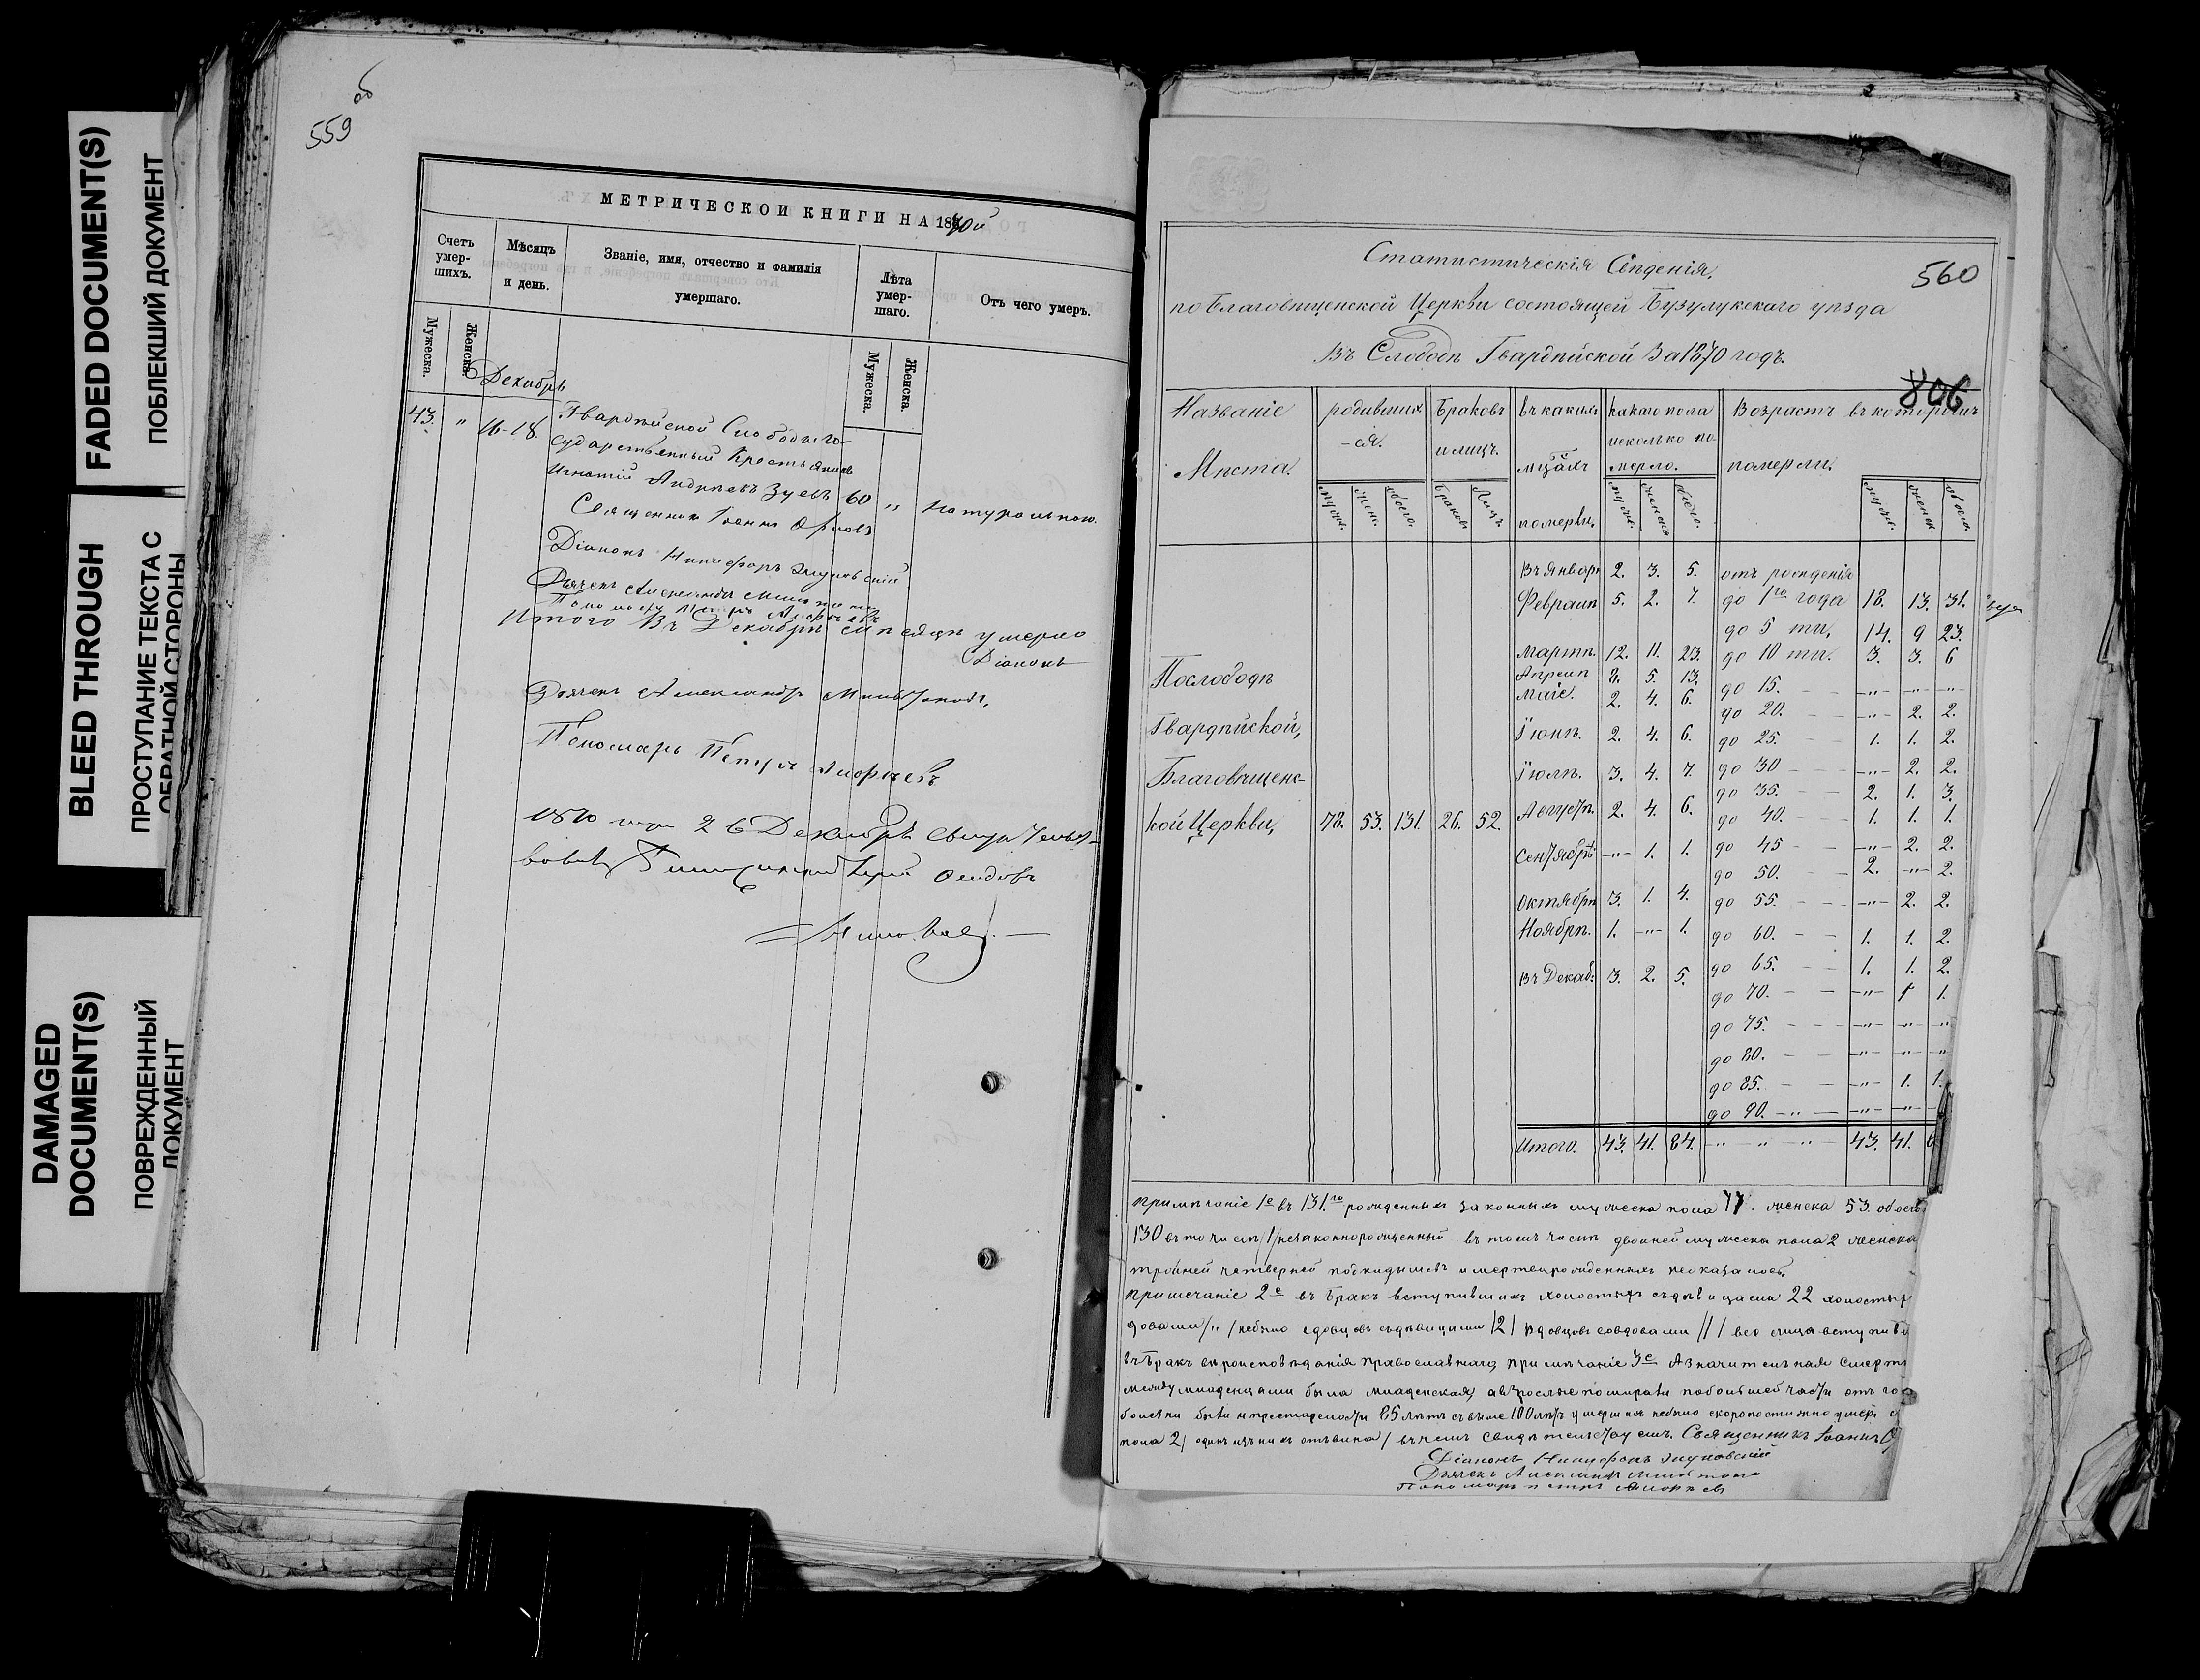 FADED DOCUMENT(S)
ПОБЛЕКШИЙ ДОКУМЕНТ
BLEED THROUGH
ПРОСТУПАНИЕ ТЕКСТА С
ОБРАТНОЙ СТОРОНЫ
DAMAGED
DOCUMENT(S)
ПОВРЕЖДЕННЫЙ
ДОКУМЕНТ
559 об
МЕТРИЧЕСКОЙ КНИГИ НА 1870й
Счетъ умер-шихъ. Мѣсяцъ и день. Званіе, имя, отчество и фамилія умершаго. Лѣта умер-шаго. Отъ чего умеръ.
Мужеска. Женска. Мужеска. Женска.
Декабрь
43. " 16-18. Гвардѣйской Слободы го-
сударственный Крестьянинъ
Игнатій Андреевъ Зуевъ 60 " Натуральною.
Священникъ Іоаннъ
Діаконъ Никифоръ
Дьячекъ Александръ
Пономарь Петръ
Итого Въ Декабрѣ мѣсяцѣ умерло
Діаконъ
Дьячекъ Александръ
Пономарь Петръ
1870 года 26 Декабря
560
Статистическія Свѣденія,
по Благовѣщенской Церкви состоящей Бузулукскаго уѣзда
въ Слободѣ Гвардѣйской за 1870 годъ.
806
Названіе Мѣста. родивших-ся. Браковъ и лицъ. въ какихъ мцахъ померли, какаго пола и сколько по-мерло. Возрастъ въ которомъ померли.
муже. женс. обоего. Браковъ Лицъ. муже. женска обоего. муже. женск. обоего.
Въ Январѣ 2. 3. 5. отъ рожденія
Февралѣ 5. 2. 7. до 1го года 18. 13. 31.
до 5 ти, 14. 9 23.
Мартѣ. 12. 11. 23. до 10 ти. 3. 3. 6
По слободѣ Апрелѣ 8. 5. 13. до 15. — — -"- -"- -"-
Маіе. 2. 4. 6. до 20. — — -"- 2. 2.
Гвардѣйской, Іюнѣ. 2. 4. 6. до 25. — — 1. 1. 2.
Благовѣщенс- Іюлѣ. 3. 4. 7. до 30 — — -"- 2. 2.
до 35. — — 2. 1. 3.
кой Церкви, 78. 53. 131. 26. 52. Августѣ. 2. 4. 6. до 40. — — 1. 1. 1.
Сентябрѣ -"- 1. 1. до 45 — — -"- 2. 2.
до 50. — — 2. -"- 2.
Октябрѣ 3. 1. 4. до 55. — — -"- 2. 2.
Ноябрѣ. 1. -"- 1. до 60. — — 1. 1. 2.
Въ Декаб: 3. 2. 5. до 65. — — 1. 1. 2.
до 70. — — -"- 1 1.
до 75. — — -"- -"- -"-
до 80. — — -"- -"- -"-
до 85. — — -"- 1. 1.
до 90. -"- — -"- -"- —
Итого. 43. 41. 84. -"- " -"- 43. 41.
Примѣчаніе 1е въ 131.го рожденныхъ законныхъ мужеска пола 77. женска 53. обоего
130 въ то числѣ /1/ незаконнорожденный въ томъ числѣ двойней мужеска пола 2 женска
тройней четверней подкидышевъ и мертворожденныхъ не оказалось,
Примечаніе 2е въ Бракъ вступившихъ холостыхъ съ дѣвицами 22 холостых
довами /"/ небыло вдовцовъ съ дѣвицами /2/ вдовцовъ со вдовами /1/ все лица вступив
въ Бракъ вѣроисповѣданія православнаго, примѣчаніе 3е А значительная смерть
между младенцами была младенская, а взрослые померали по большей части отъ го
болезни были и престарелости 85 лѣтъ свыше 100 лѣтъ умершихъ небыло скоропостижно умер
пола 2/ одинъ изъ нихъ отъ вина/ въ чемъ свидѣтельствуемъ. Священникъ Іоаннъ
Діаконъ Никифоръ
Дьячекъ Александръ
Пономарь Петръ